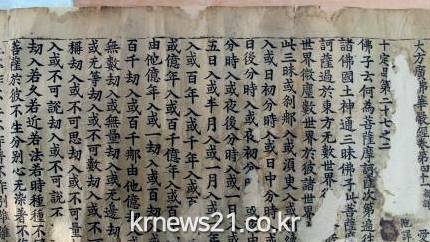 大方廣佛華嚴經卷第四十一
十定品第二十七之二
佛子云何為菩薩摩訶薩次第遍往
諸佛國土神通三昧佛子此菩薩
訶薩過於東方無數世界
世界微塵數世界於彼諸世界
此三昧或剎那入或須臾入
入或日初分時入或日中分時
日後分時入或夜初分時入
分時入或夜後分時入或一日
五日入或半月入或一月入
入或百年入或千年入或百千年
或億年入或百千億年入或
由他億年入或一劫入或百劫
百千劫入或百千那由他億
無數劫入或無量劫入或無邊劫
或無等劫入或不可數劫入
稱劫入或不可思劫入或不可
入或不可說劫入或不可說不
劫入若久若近若法若時種種不
菩薩於彼不生分別心無染著不作
krnews21.co.kr